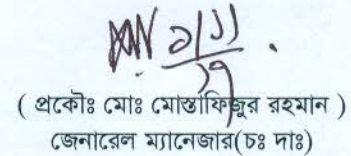 ( প্রকৌঃ মোঃ মোস্তাফিজুর রহমান )
জেনারেল ম্যানেজার(চঃ দাঃ)